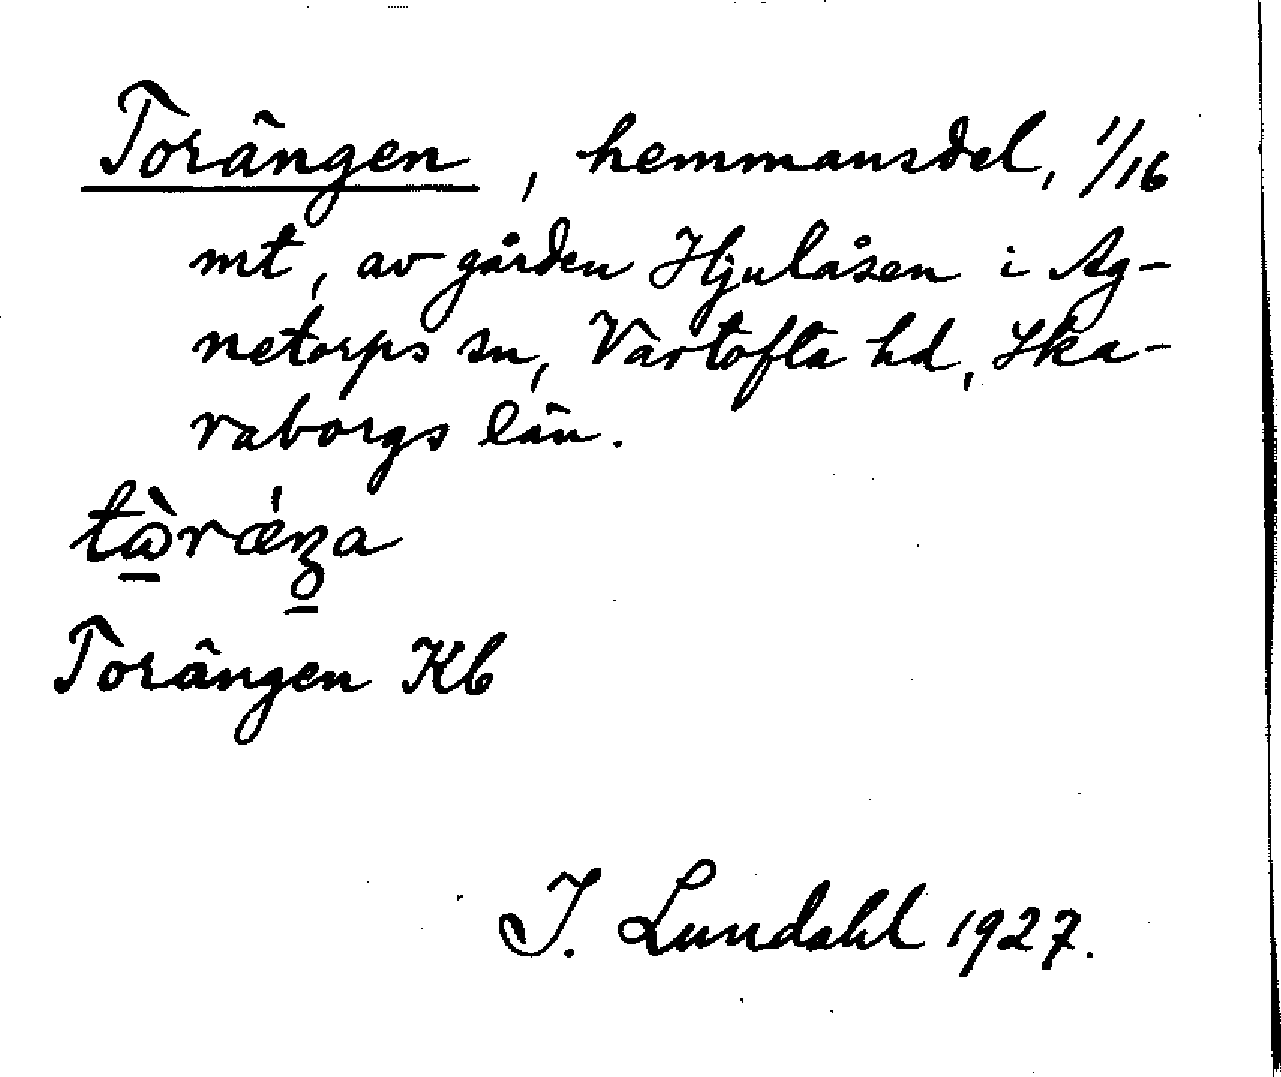 Torängen, hemmansdel, 1/16
mt, av gården Hjulåsen i Ag-
netorps sn, Vartofta hd, Ska-
raborgs län.
tɷ̀rǽŋa
Torängen Kb
I. Lundahl 1927.